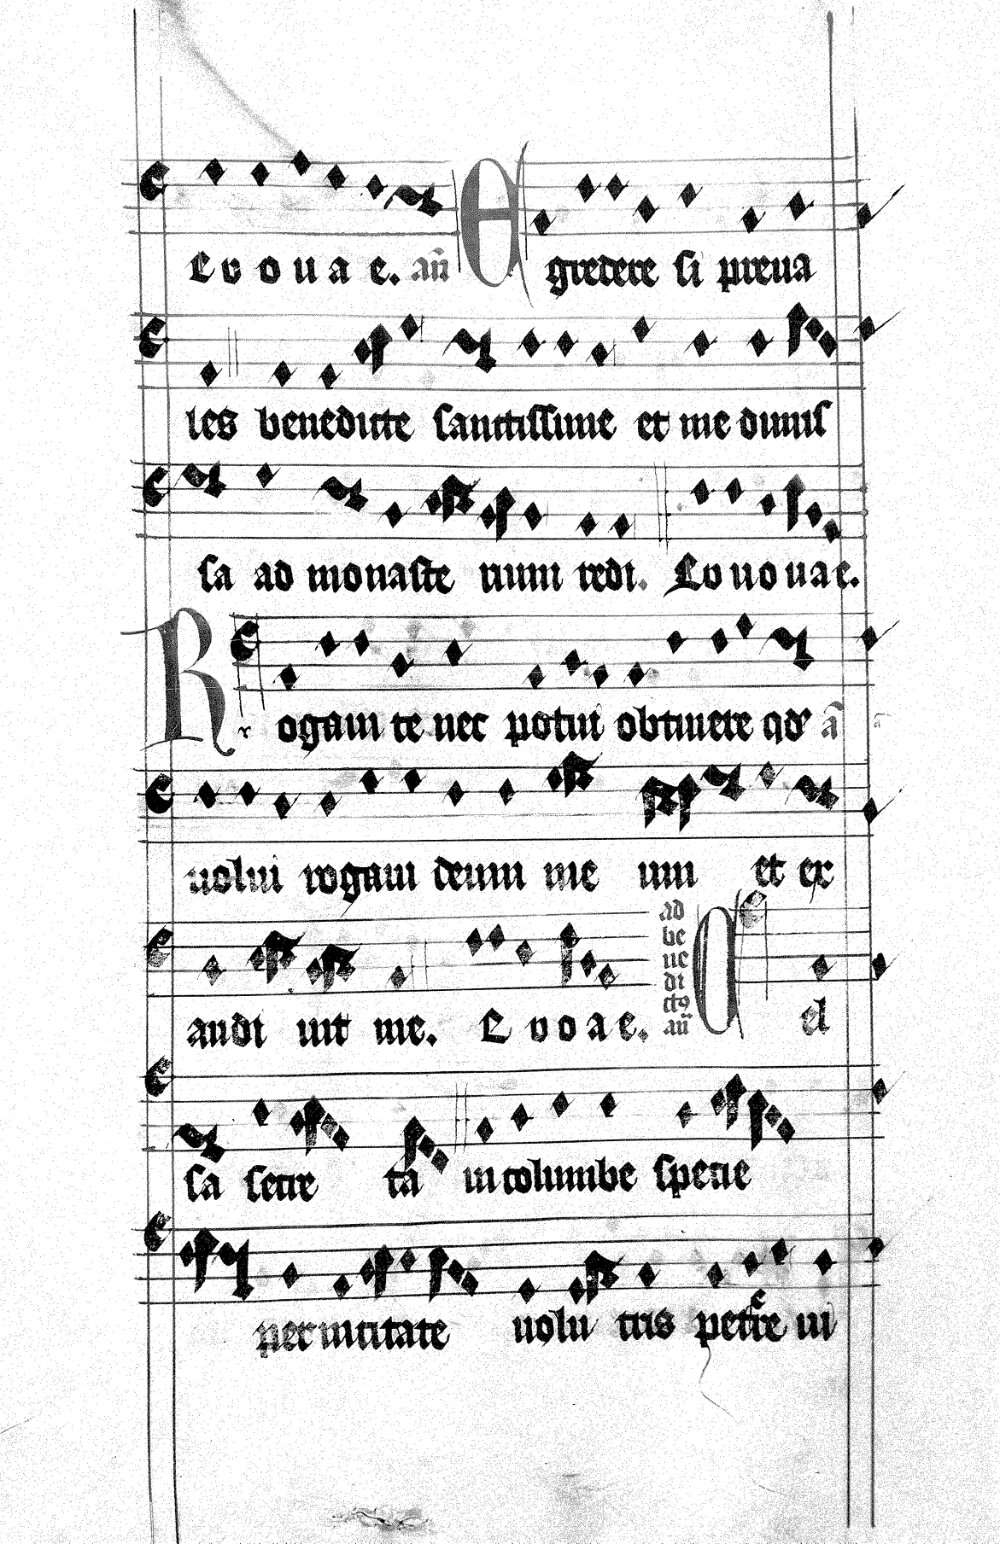 Evouae. an̄ Egredere si preua
les benedicte sanctissime et me dimis
sa ad monaste rium redi. Euouae.
Rogaui te nec potui obtinere qd' a
uolui rogaui deum me um et ex
audi uit me. Evoae. ad benedictꝰ an̄ Cel
sa secre ta in columbe specie
per inicitate uolu cris petere in